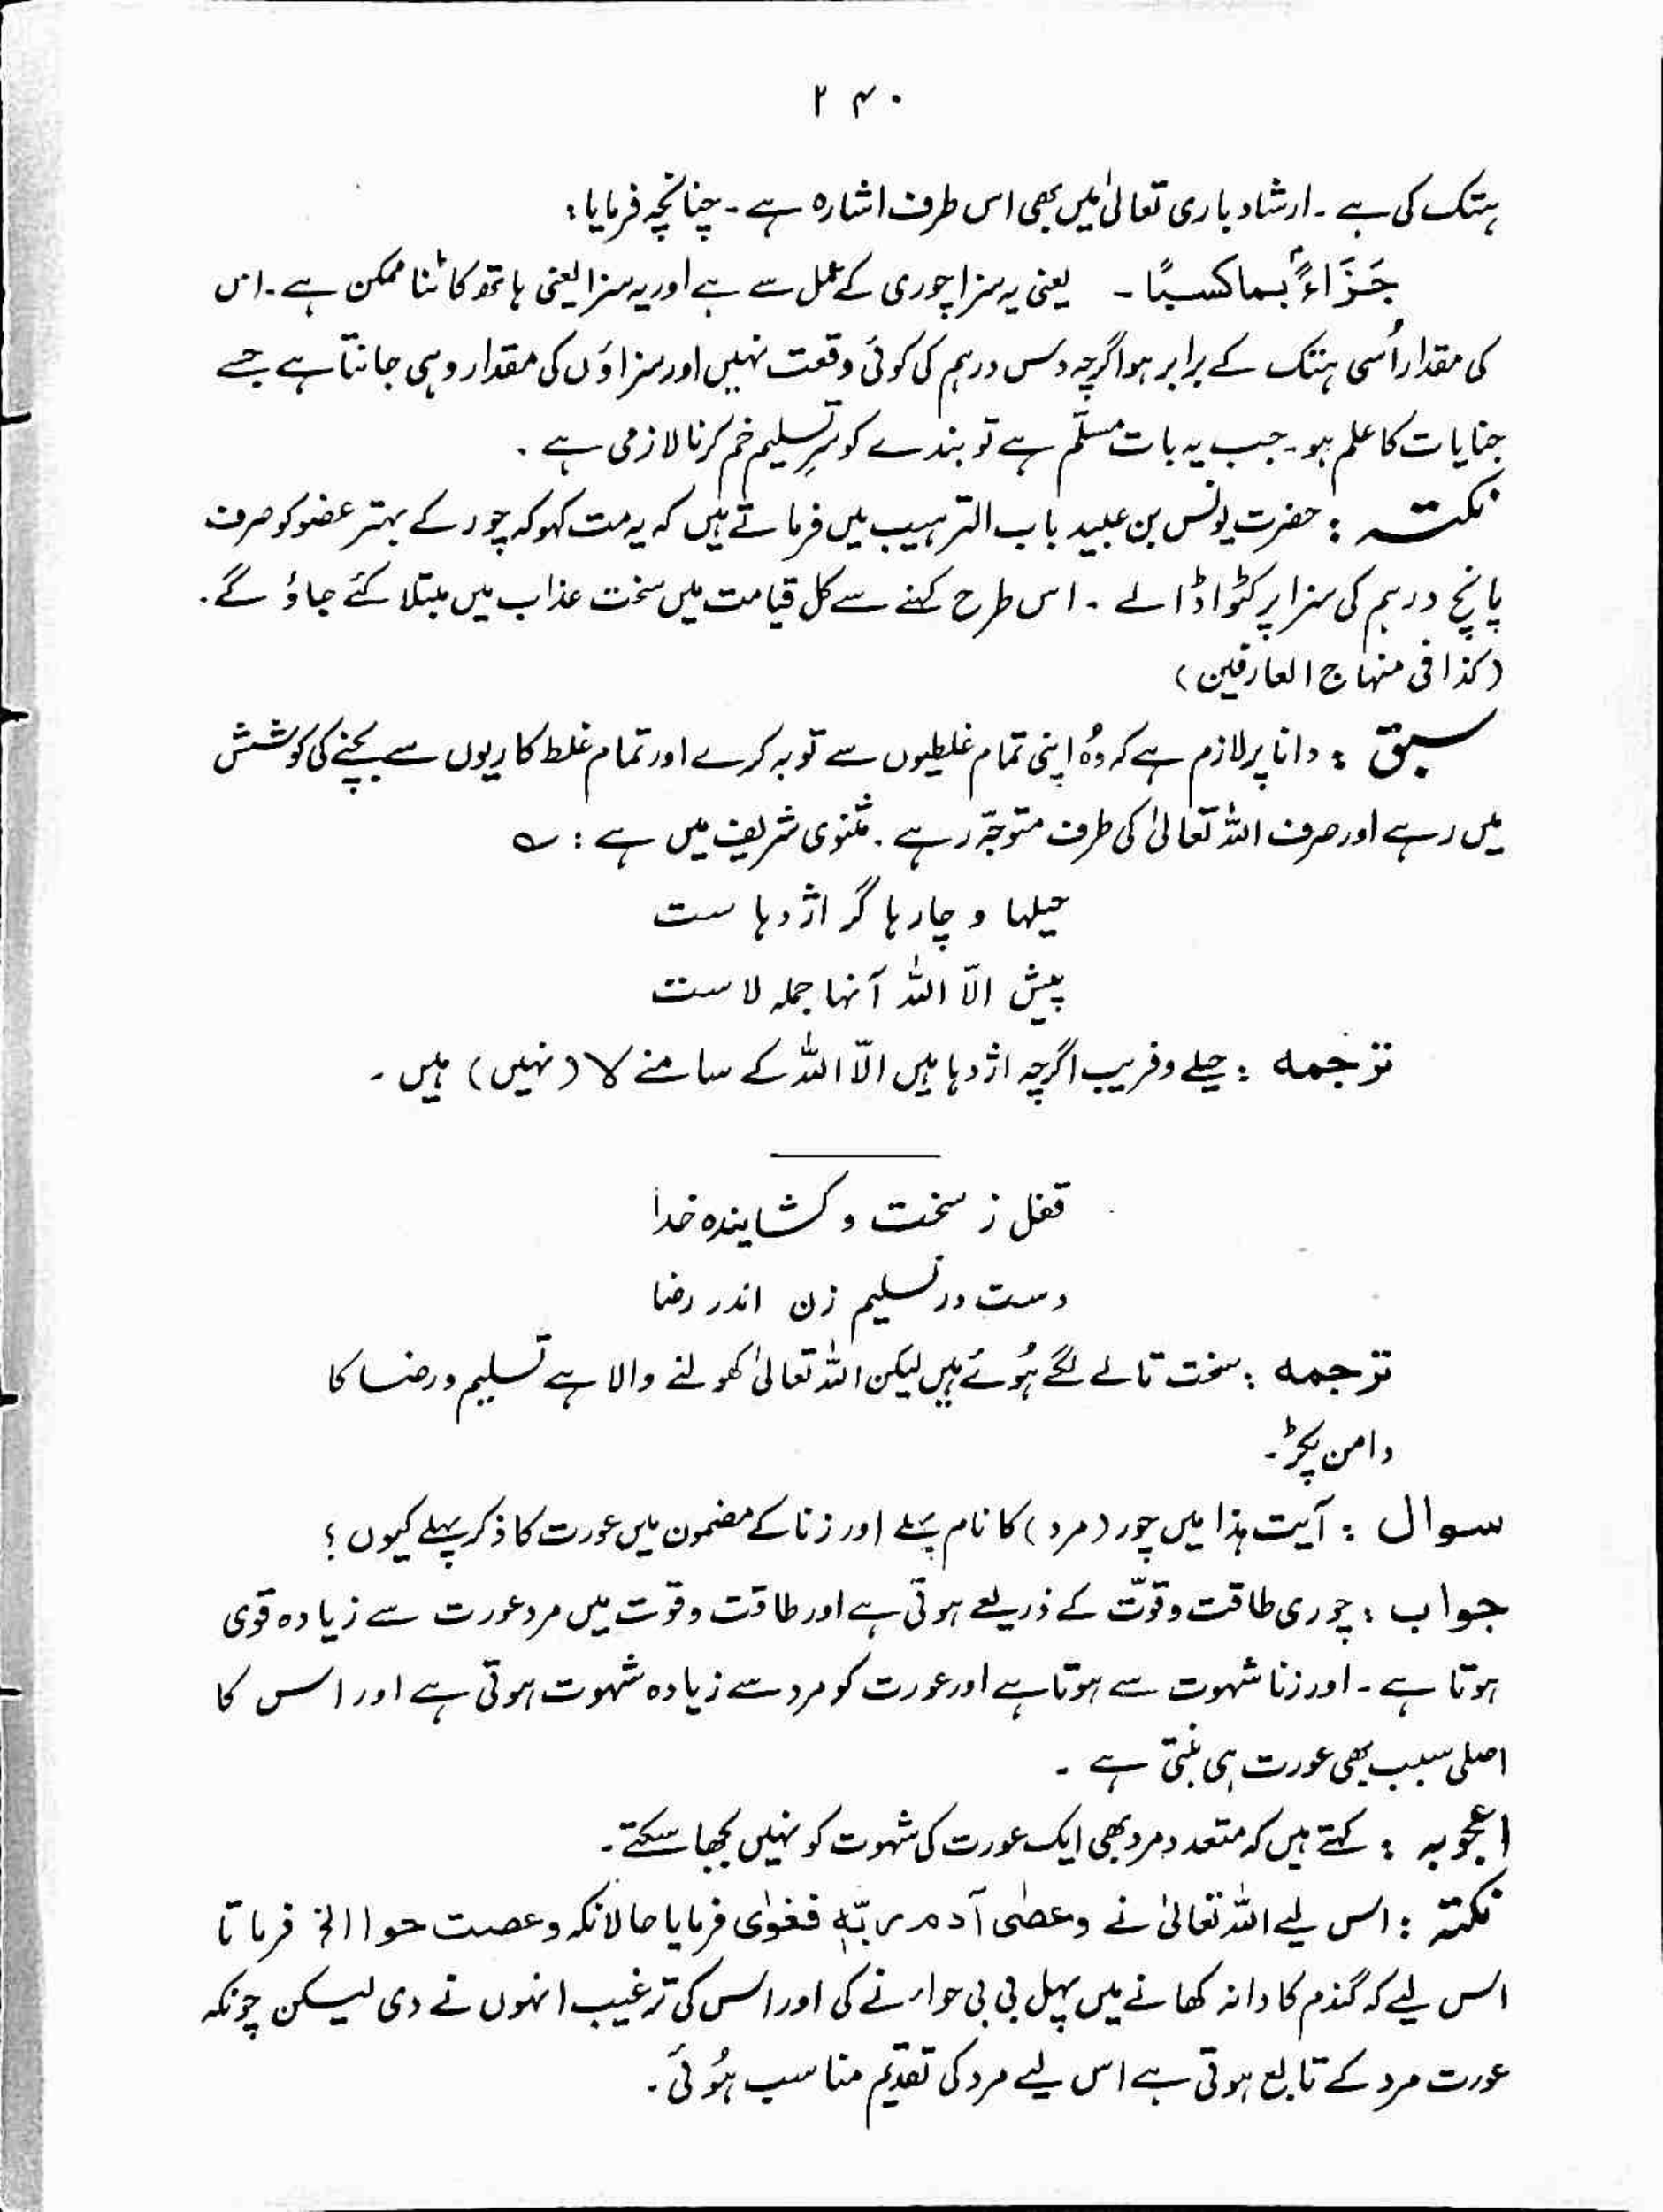 ۲۴۰
ہتک کی ہے ۔ ارشاد باری تعالیٰ میں بھی اس طرف اشارہ ہے ۔ چنانچہ فرمایا :
جَزَاءًۢ بما کسبًا ۔ یعنی یہ سزا چوری کے عمل سے ہے اور یہ سزا یعنی ہاتھ کاٹنا ممکن ہے ۔ اس
کی مقدار اُسی ہتک کے برابر ہو اگرچہ دس درہم کی کوئی وقعت نہیں اور سزاؤں کی مقدار وہی جانتا ہے جسے
جنایات کا علم ہو ۔ جب یہ بات مسلّم ہے تو بندے کو سرِ تسلیم خم کرنا لازمی ہے ۔
نکتہ : حضرت یونس بن عبید باب الترہیب میں فرماتے ہیں کہ یہ مت کہو کہ چور کے بہتر عضو کو صرف
پانچ درہم کی سزا پر کٹوا ڈالے ۔ اس طرح کہنے سے کل قیامت میں سخت عذاب میں مبتلا کئے جاؤ گے ۔
(کذا فی منہاج العارفین)
سبق : دانا پر لازم ہے کہ وُہ اپنی تمام غلطیوں سے توبہ کرے اور تمام غلط کاریوں سے بچنے کی کوشش
میں رہے اور صرف اللہ تعالیٰ کی طرف متوجّہ رہے ۔ مثنوی شریف میں ہے : ؎
حیلہا و چارہا گر اژدہا ست
پیش الّا اللہ آنہا جملہ لا ست
ترجمہ : حیلے و فریب اگرچہ اژدہا ہیں الّا اللہ کے سامنے لا (نہیں) ہیں ۔
قفل ز سخت و کشایندہ خدا
دست در تسلیم زن اندر رضا
ترجمہ : سخت تالے لگے ہُوئے ہیں لیکن اللہ تعالیٰ کھولنے والا ہے تسلیم و رضا کا
دامن پکڑ ۔
سوال : آیت ہذا میں چور (مرد) کا نام پہلے اور زنا کے مضمون میں عورت کا ذکر پہلے کیوں ؟
جواب : چوری طاقت و قوّت کے ذریعے ہوتی ہے اور طاقت و قوت میں مرد عورت سے زیادہ قوی
ہوتا ہے ۔ اور زنا شہوت سے ہوتا ہے اور عورت کو مرد سے زیادہ شہوت ہوتی ہے اور اس کا
اصلی سبب بھی عورت ہی بنتی ہے ۔
اعجوبہ : کہتے ہیں کہ متعدد مرد بھی ایک عورت کی شہوت کو نہیں بجھا سکتے ۔
نکتہ : اس لیے اللہ تعالیٰ نے وعصٰی آدم ربّہ فغوٰی فرمایا حالانکہ وعصت حوا الخ فرماتا
اس لیے کہ گندم کا دانہ کھانے میں پہل بی بی حوا نے کی اور اس کی ترغیب انہوں نے دی لیکن چونکہ
عورت مرد کے تابع ہوتی ہے اس لیے مرد کی تقدیم مناسب ہُوئی ۔